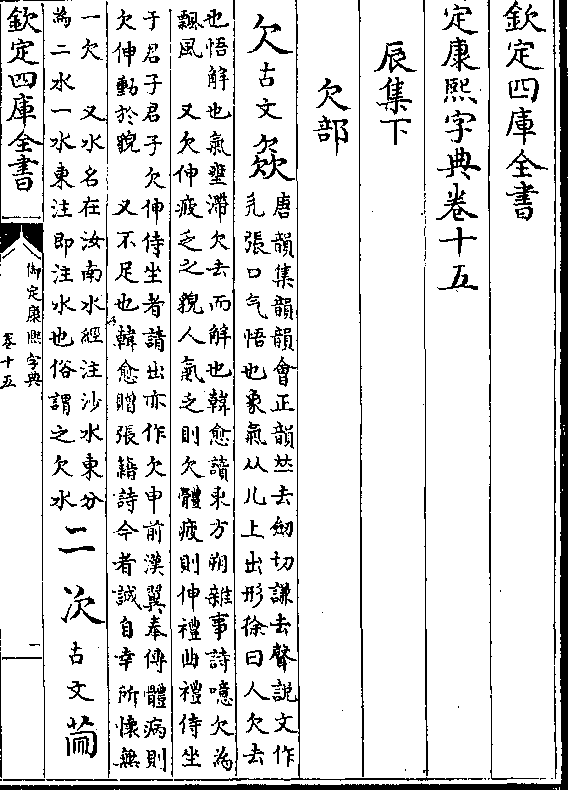 欽定四庫全書
定康熙字典卷十五
辰集下
欠部
欠古文
唐韻集韻韻會正韻𠀤去劒切謙去聲說文作
張口气悟也象氣从儿上出形徐曰人欠去
也悟解也氣壅滯欠去而解也韓愈讀東方朔雜事詩噫欠為
飄風　又欠伸疲乏之貌人氣乏則欠體疲則伸禮曲禮侍坐
于君子君子欠伸侍坐者請出亦作欠申前漢翼奉傳體病則
欠伸動於貌　又不足也韓愈贈張籍詩今者誠自幸所懷無
一欠　又水名在汝南水經注沙水東分
為二水一水東注即注水也俗謂之欠水
二　次古文
欽定四庫全書
御定康熙字典
卷十五
二